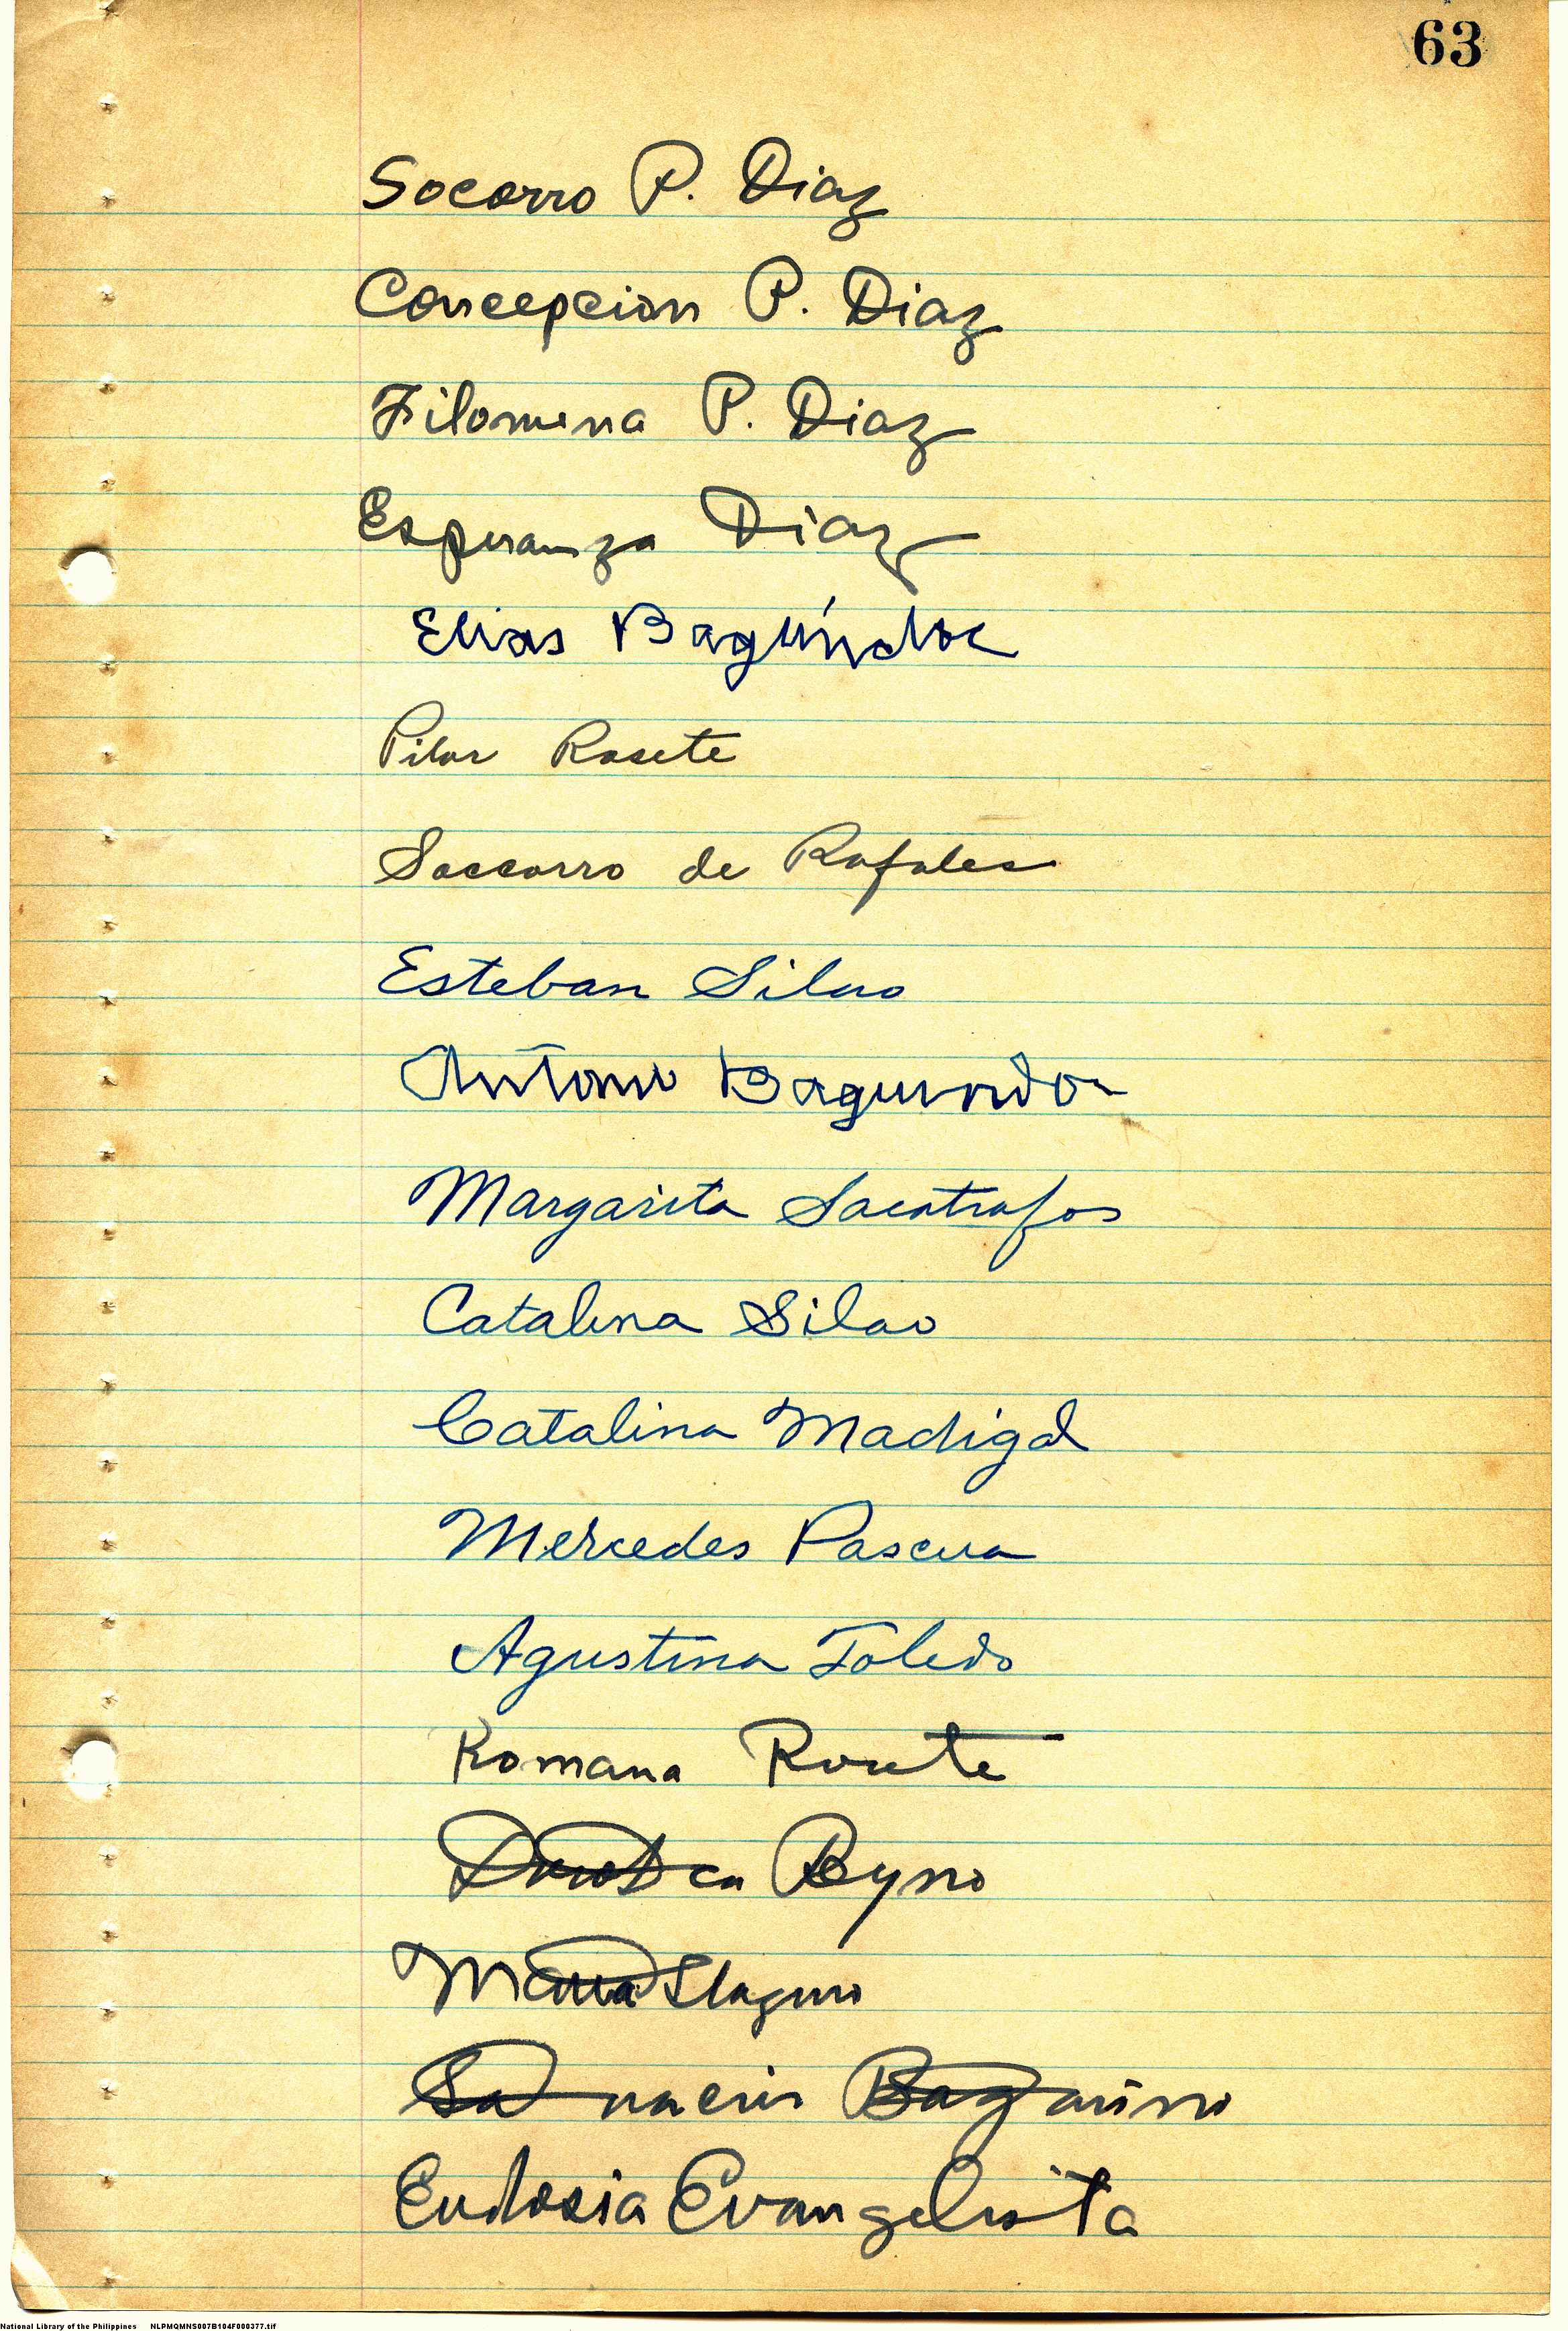 63
Socorro P. Diaz
Concepcion P. Diaz
Filomena P. Diaz
Esperanza Diaz
Elias
Pilar Rosete
Soccorro de
Esteban Silao
Antonio
Margarita
Catalina Silao
Catalina Madigal
Mercedes Pascua
Agustina Toledo
Romana
Dorotea Reyno
Maria

Eudosia Evangelista
National Library of the Philippines NLPMQMNS007B104F000377.tif